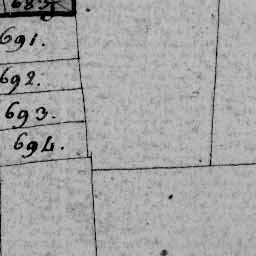 691.
692.
693.
694.